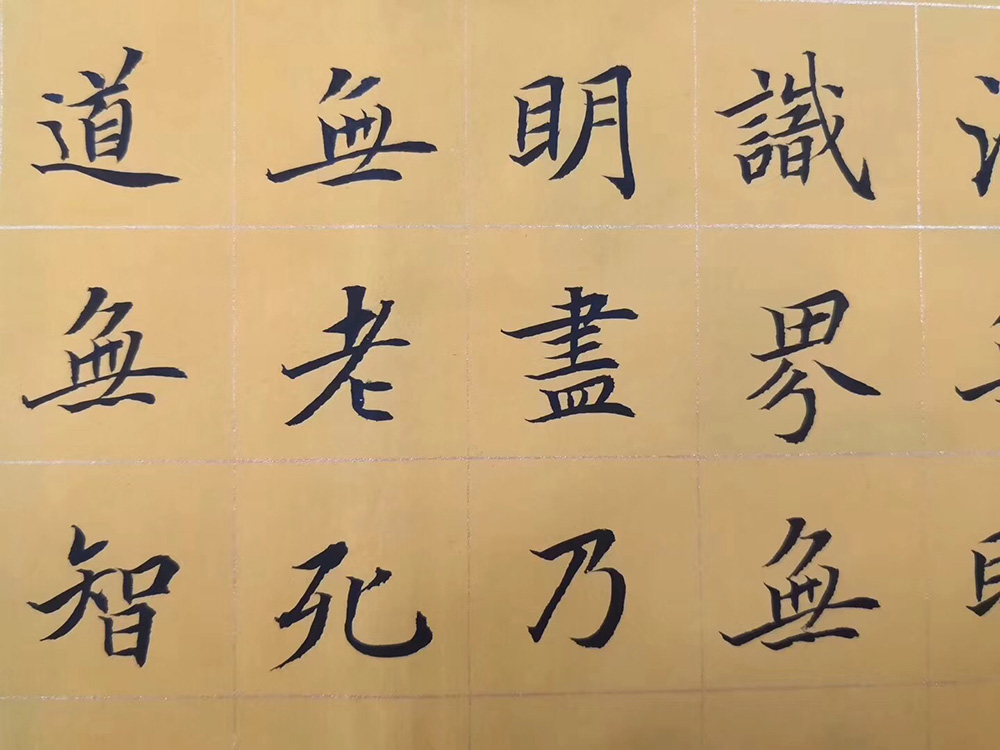 識界無
明盡乃
無老死
道無智